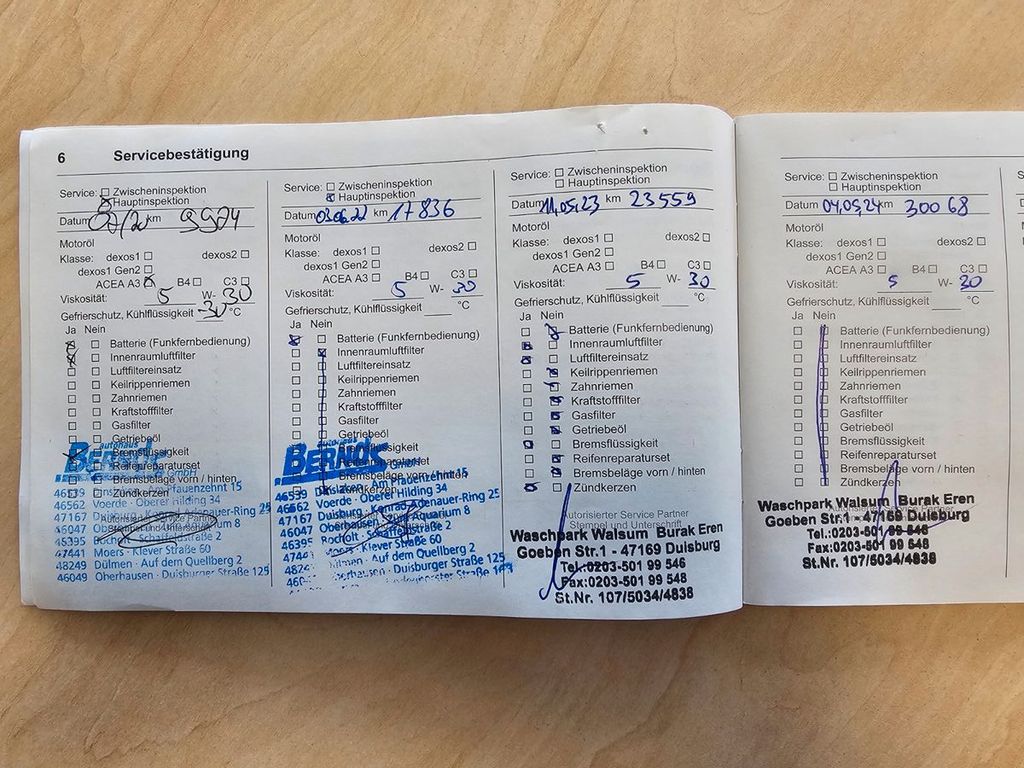 6 Servicebestätigung
Service: Zwischeninspektion
Hauptinspektion
Datum 07/20 km 9974
Motoröl
Klasse: dexos1 dexos2
dexos1 Gen2
ACEA A3 B4 C3
Viskosität: 5 W- 30
Gefrierschutz, Kühlflüssigkeit -30 °C
Ja Nein
Batterie (Funkfernbedienung)
Innenraumluftfilter
Luftfiltereinsatz
Keilrippenriemen
Zahnriemen
Kraftstofffilter
Gasfilter
Getriebeöl
Bremsflüssigkeit
Reifenreparaturset
Bremsbeläge vorn / hinten
Zündkerzen
autohaus
BERNDS
GmbH
46539 Dinslaken Am Pfauenzehnt 15
46562 Voerde · Oberer Hilding 34
47167 Duisburg
46047
46395
47441 Moers · Klever Straße 60
48249 Dülmen · Auf dem Quellberg 2
46049 Oberhausen · Duisburger Straße 125
Service: Zwischeninspektion
Hauptinspektion
Datum 03.06.22 km 17836
Motoröl
Klasse: dexos1 dexos2
dexos1 Gen2
ACEA A3 B4 C3
Viskosität: 5 W- 30
Gefrierschutz, Kühlflüssigkeit °C
Ja Nein
Batterie (Funkfernbedienung)
Innenraumluftfilter
Luftfiltereinsatz
Keilrippenriemen
Zahnriemen
Kraftstofffilter
Gasfilter
Getriebeöl
Bremsflüssigkeit
Reifenreparaturset
Bremsbeläge vorn / hinten
Zündkerzen
BERNDS
GmbH
46539 Dinslaken Am Pfauenzehnt 15
46562 Voerde · Oberer Hilding 34
47167 Duisburg · Konrad-Adenauer-Ring 25
46047 Oberhausen Aquarium 8
46395 Bocholt · Schaffeldstraße 2
Moers · Klever Straße 60
Dülmen · Auf dem Quellberg 2
Oberhausen · Duisburger Straße 125
Service: Zwischeninspektion
Hauptinspektion
Datum 11.05.23 km 23559
Motoröl
Klasse: dexos1 dexos2
dexos1 Gen2
ACEA A3 B4 C3
Viskosität: 5 W- 30
Gefrierschutz, Kühlflüssigkeit °C
Ja Nein
Batterie (Funkfernbedienung)
Innenraumluftfilter
Luftfiltereinsatz
Keilrippenriemen
Zahnriemen
Kraftstofffilter
Gasfilter
Getriebeöl
Bremsflüssigkeit
Reifenreparaturset
Bremsbeläge vorn / hinten
Zündkerzen
Autorisierter Service Partner
Stempel und Unterschrift
Waschpark Walsum Burak Eren
Goeben Str.1 - 47169 Duisburg
Tel.:0203-501 99 546
Fax:0203-501 99 548
St.Nr. 107/5034/4838
Service: Zwischeninspektion
Hauptinspektion
Datum 04.05.24 km 30068
Motoröl
Klasse: dexos1 dexos2
dexos1 Gen2
ACEA A3 B4 C3
Viskosität: 5 W- 30
Gefrierschutz, Kühlflüssigkeit °C
Ja Nein
Batterie (Funkfernbedienung)
Innenraumluftfilter
Luftfiltereinsatz
Keilrippenriemen
Zahnriemen
Kraftstofffilter
Gasfilter
Getriebeöl
Bremsflüssigkeit
Reifenreparaturset
Bremsbeläge vorn / hinten
Zündkerzen
Waschpark Walsum Burak Eren
Goeben Str.1 - 47169 Duisburg
Tel.:0203-501 99 546
Fax:0203-501 99 548
St.Nr. 107/5034/4838